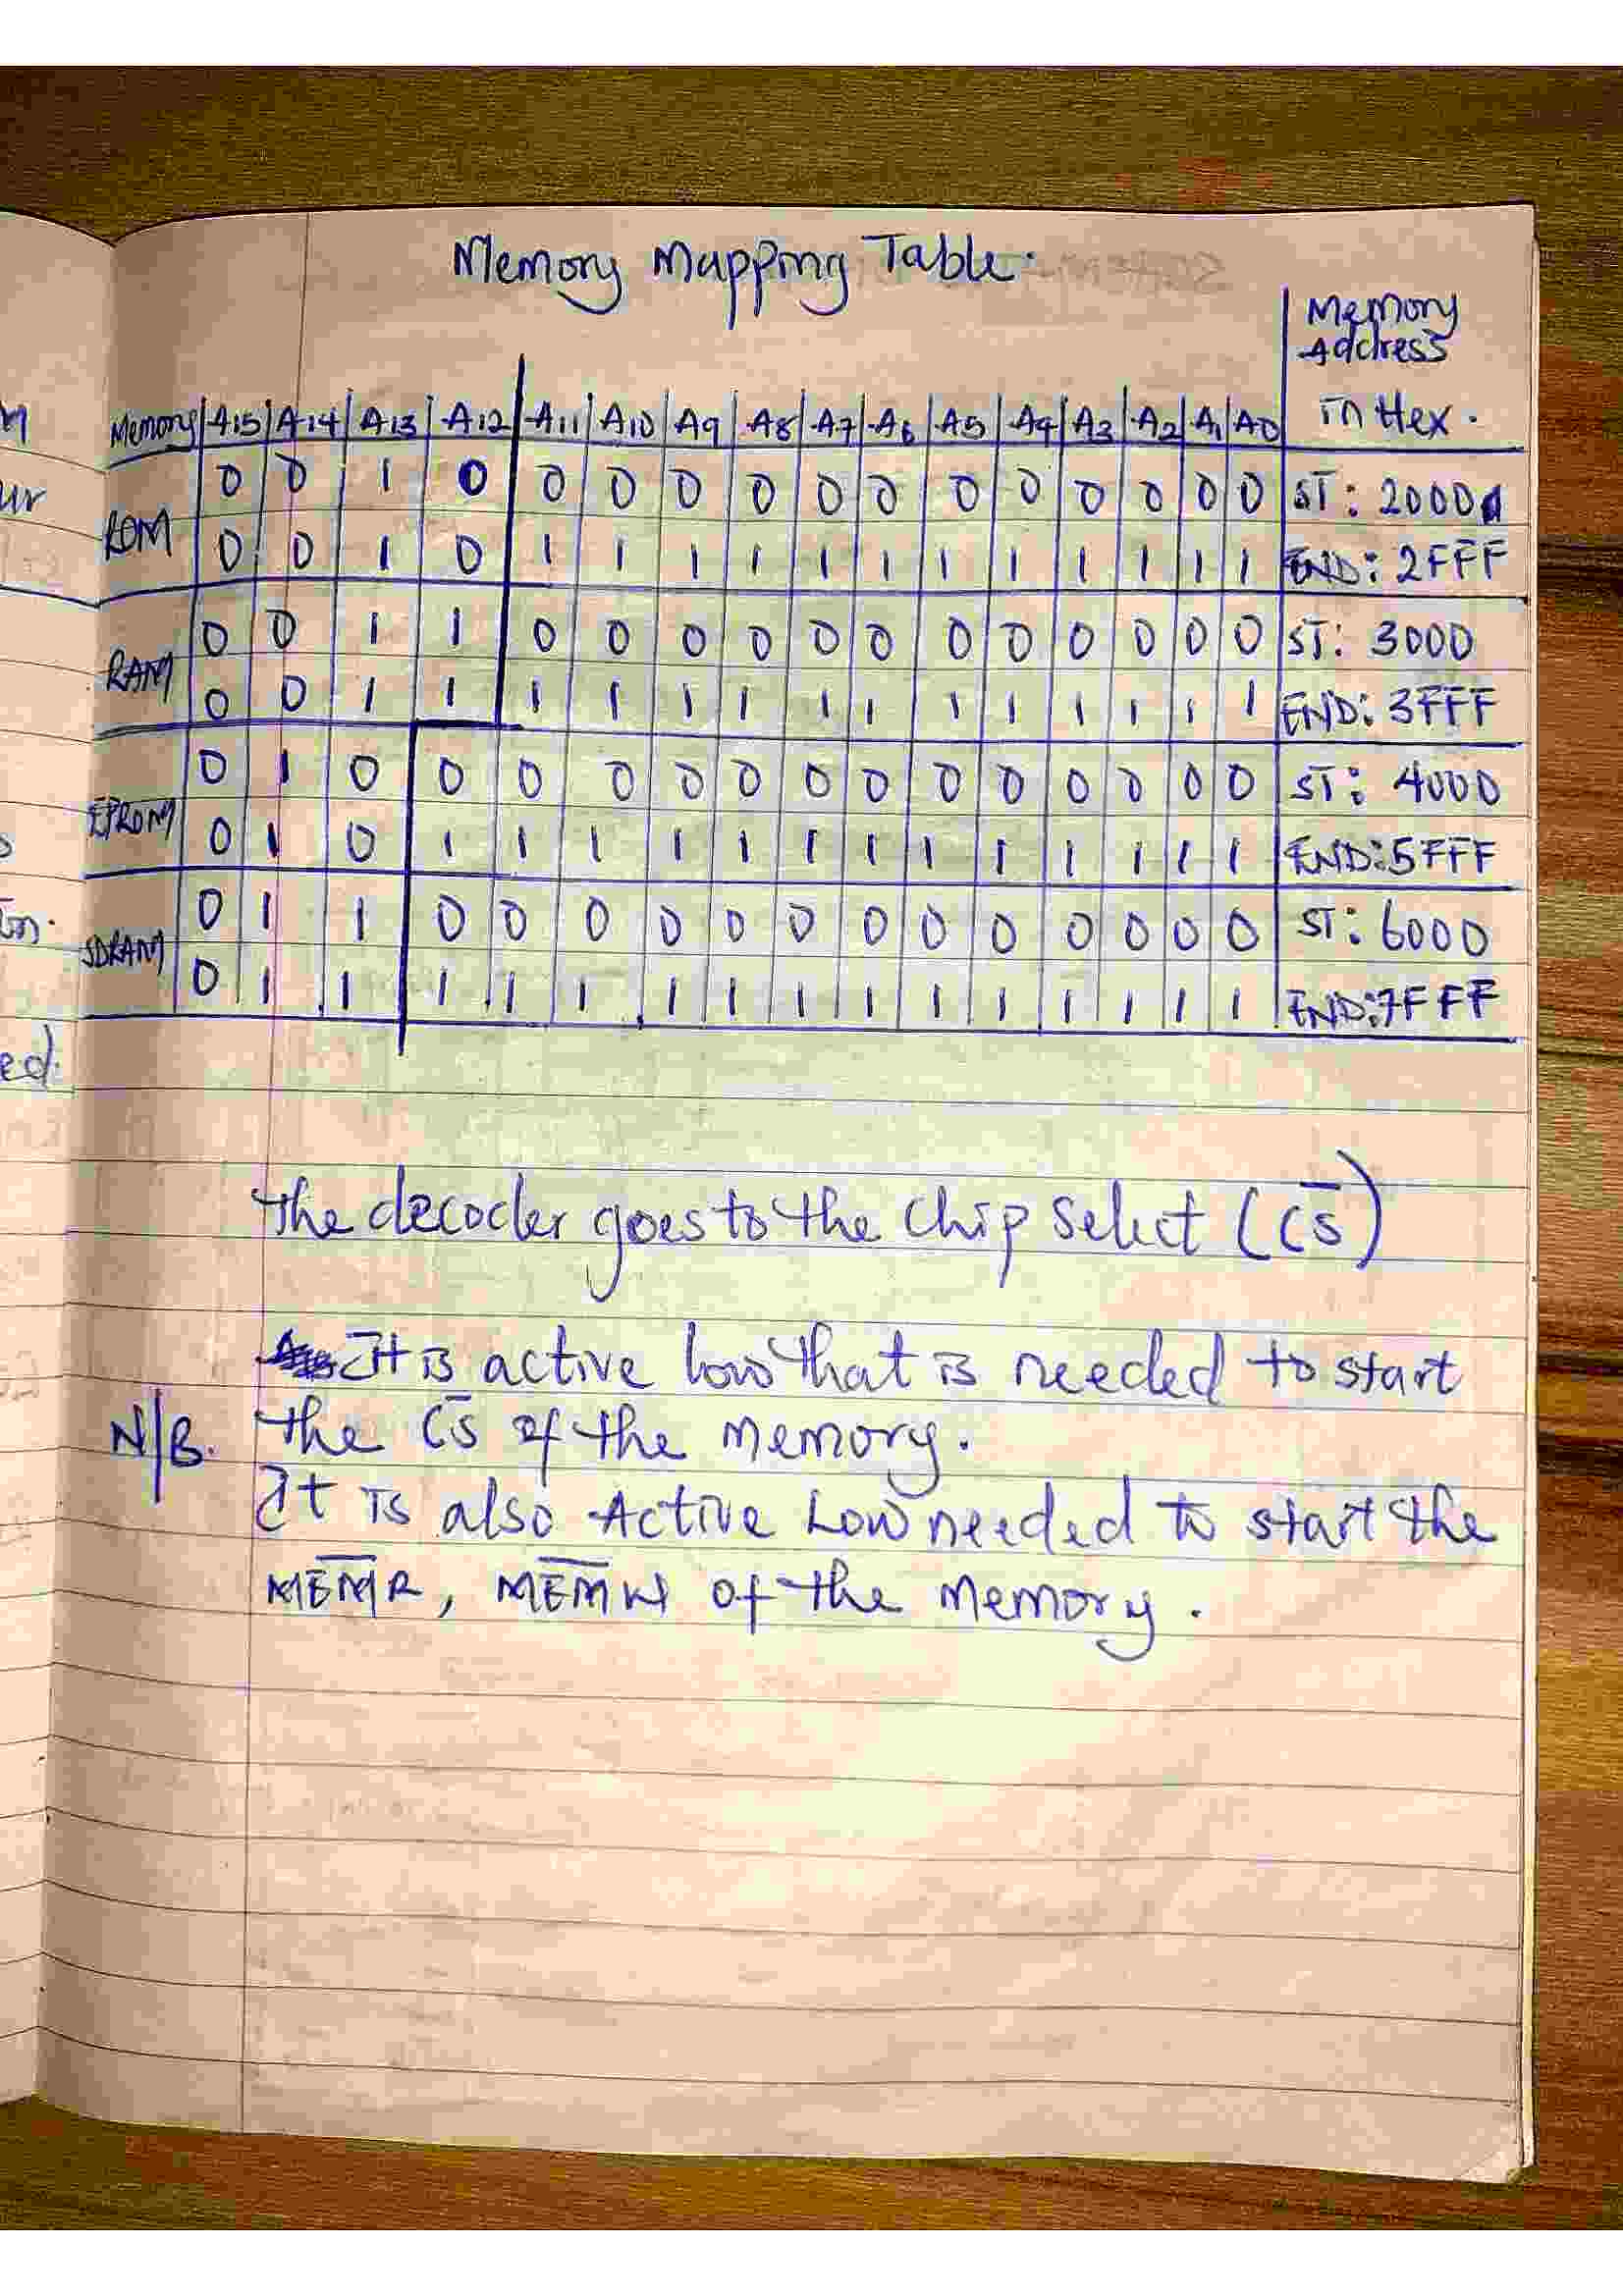 Memory Mapping Table.
Memory Address in Hex.
Memory A15 A14 A13 A12 A11 A10 A9 A8 A7 A6 A5 A4 A3 A2 A1 A0
ROM
0 0 1 0 0 0 0 0 0 0 0 0 0 0 0 0 ST: 2000
0 0 1 0 1 1 1 1 1 1 1 1 1 1 1 1 END: 2FFF
RAM
0 0 1 1 0 0 0 0 0 0 0 0 0 0 0 0 ST: 3000
0 0 1 1 1 1 1 1 1 1 1 1 1 1 1 1 END: 3FFF
EPROM
0 1 0 0 0 0 0 0 0 0 0 0 0 0 0 0 ST: 4000
0 1 0 1 1 1 1 1 1 1 1 1 1 1 1 1 END: 5FFF
SDRAM
0 1 1 0 0 0 0 0 0 0 0 0 0 0 0 0 ST: 6000
0 1 1 1 1 1 1 1 1 1 1 1 1 1 1 1 END: 7FFF
The decoder goes to the chip select (C̅S̅)
It is active low that is needed to start
N/B. the C̅S̅ of the memory.
It is also Active Low needed to start the
M̅E̅M̅R̅, M̅E̅M̅W̅ of the memory.